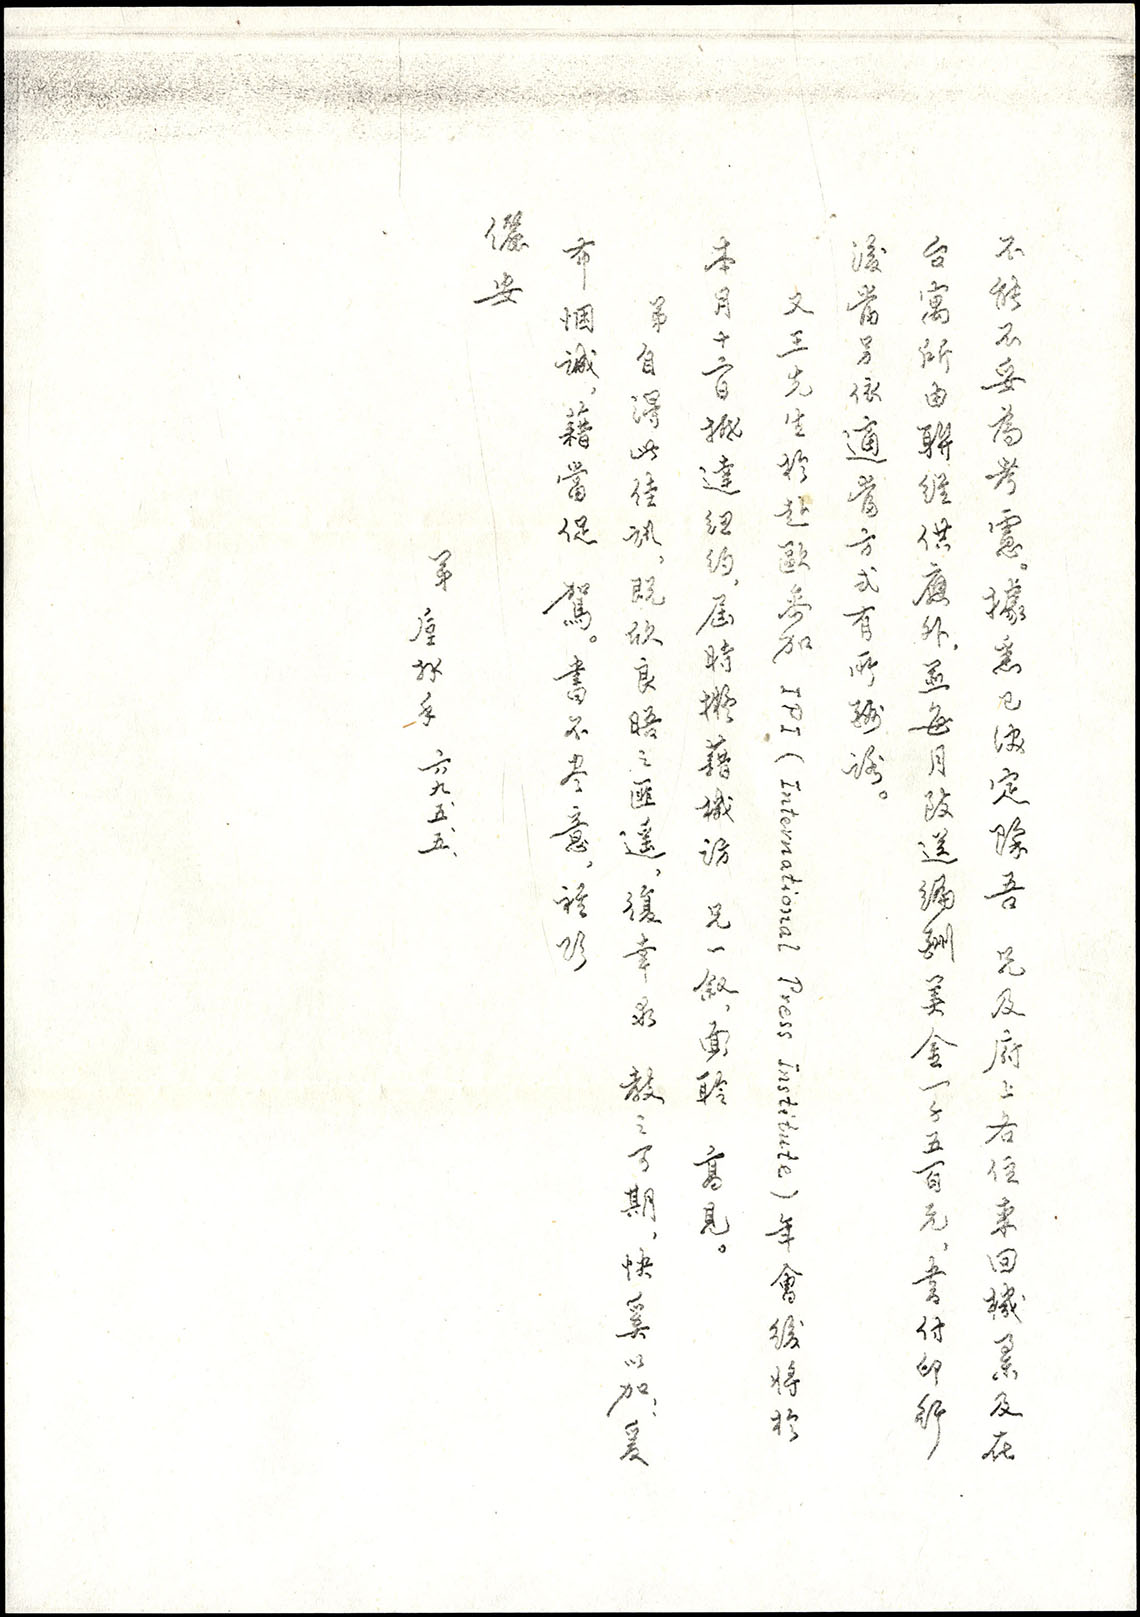 不能不妥為考慮。據悉已決定除吾　兄及府上各位來回機票及在
台寓所由聯經供應外，並每月致送編酬美金一千五百元，書付印行
後當另依適當方式有所酬謝。
又王先生於赴歐參加 IPI (International Press Institute) 年會後將於
本月十六日抵達紐約，屆時擬藉機訪　兄一敘，面聆　高見。
弟自得此佳訊，既欣良晤之匪遙，復幸承　教之可期，快奚以加！爰
布悃誠，藉當促　駕。書不盡意，祗頌
儷安
弟　六九、五、五、